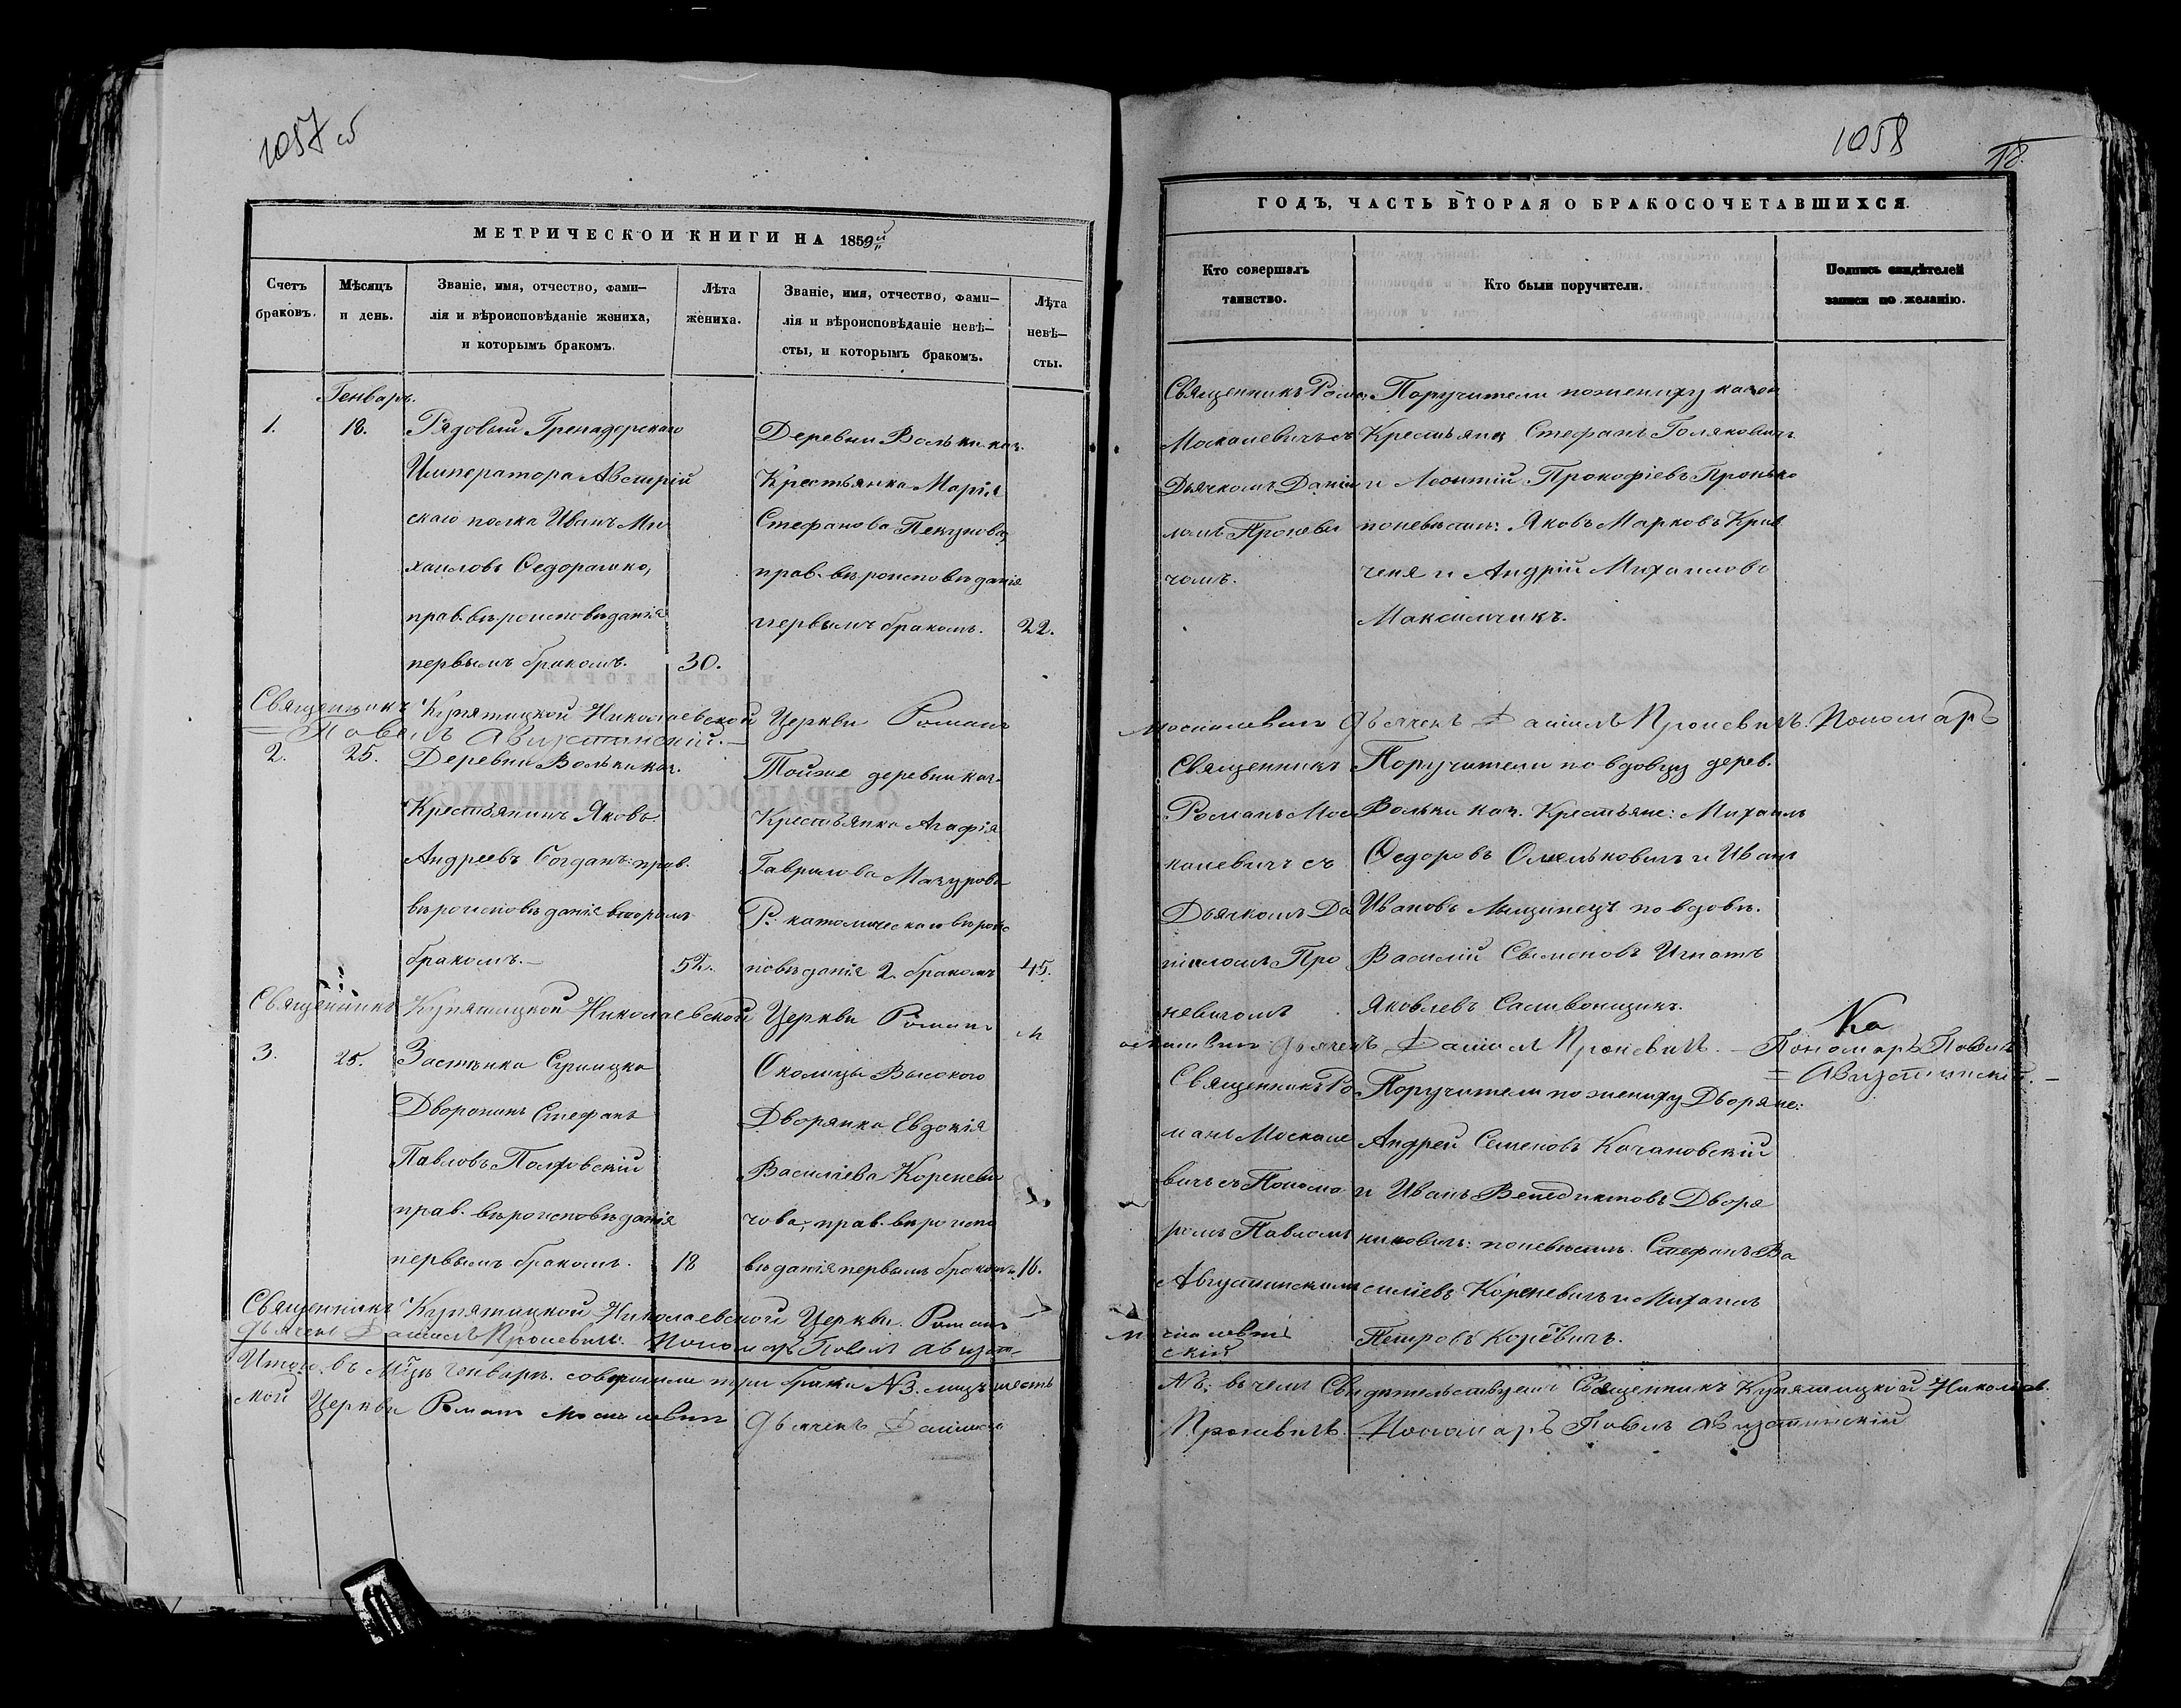 1057 об
МЕТРИЧЕСКОЙ КНИГИ НА 1859й
Счетъ браковъ.
Мѣсяцъ и день.
Званіе, имя, отчество, фами–
лія и вѣроисповѣданіе жениха,
и которымъ бракомъ.
Лѣта
жениха.
Званіе, имя, отчество, фами–
лія и вѣроисповѣданіе невѣ–
сты, и которымъ бракомъ.
Лѣта
невѣ–
сты.
Генварь.
1.
18.
Рядовый Гренадерскаго
Императора Австрій
скаго полка Иванъ Ми
хаиловъ Ѳедорашко,
прав. вѣроисповѣданія
первымъ бракомъ.
30.
Деревни Вольки каз.
Крестьянка Марія
Стефанова Пекунова,
прав. вѣроисповѣданія
первымъ бракомъ.
22.
Священникъ Купятицкой Николаевской Церкви Романъ
Павелъ Августинскій.
2.
25.
Деревни Вольки каз.
Крестьянинъ Яковъ
Андреевъ Богданъ: прав.
вѣроисповѣданія вторымъ
бракомъ.
52.
Тойже деревни каз.
Крестьянка Агафія
Гаврилова Мазурова
Р. католическаго вѣроис
повѣданія 2. бракомъ
45.
Священникъ Купятицкой Николаевской Церкви Романъ М
3.
25.
Застѣнка
Дворянинъ Стефанъ
Павловъ
прав. вѣроисповѣданія
первымъ бракомъ.
18
Околицы Высокого
Дворянка Евдокія
Василіева Кореневи
чова, прав. вѣроиспо
вѣданія первымъ бракомъ.
16.
Священникъ Купятицкой Николаевской Церкви Романъ
Дьячекъ Даніилъ Проневичъ. Пономарь Павелъ Августин
Итого въ М̃цѣ Генварѣ. совершили три брака №3. лицъ шесть
кой Церкви Романъ Москалевичъ Дьячекъ Даніилъ
1058
18.
ГОДЪ, ЧАСТЬ ВТОРАЯ О БРАКОСОЧЕТАВШИХСЯ.
Кто совершалъ
таинство.
Кто были поручители.
Подпись свидѣтелей
записи по желанію.
Священникъ Рома
Москалевичъ съ
Дьячкомъ Даніи
ломъ Проневи
чомъ.
Поручители по жениху казен
Крестьяне Стефанъ Голякович
и Леонтій Прокофіевъ Пронько
по невѣстѣ: Яковъ Марковъ Крив
ченя и Андрій Михаиловъ
Максимчикъ.
Москалевичъ Дьячекъ Даніилъ Проневичъ. Пономарь
Священникъ
Романъ Мос
калевичъ съ
Дьячкомъ Да
ніиломъ Про
невичомъ
Поручители по вдовцу дерев.
Вольки каз. Крестьяне: Михаилъ
Ѳедоровъ Омельковичъ и Иванъ
Ивановъ по вдовѣ.
Василій Семеновъ Игнатъ
Яковлевъ
оскалевичъ Дьячекъ Даніилъ Проневичъ. – Пономарь Павелъ
Августинскій. –
Священникъ Ро
манъ Москале
вичъ съ Понома
ремъ Павломъ
Августинскимъ
Поручители по жениху Дворяне:
Андрей Семеновъ Качановскій
и Иванъ Венедиктовъ Дворя
ниновичъ: по невѣстѣ. Стефанъ Ва
силіевъ Кореневичъ и Михаилъ
Петровъ Корёвичъ.
скій
№ъ: въ чемъ Свидетельствуемъ Священникъ Купятицкій Николаев.
Проневичъ. Пономарь Павелъ Августинскій